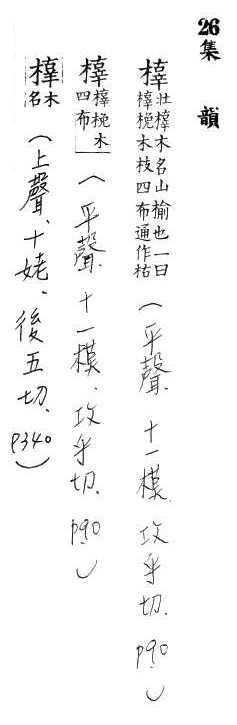 26 集韻
橭 壯橭木名山榆也一曰橭榥木枝四布通作枯(平聲、十一模、攻乎切、P90)
橭 橭榥木四布(平聲、十一模、攻乎切、P90)
橭 木名(上聲、十姥、後五切、P340)